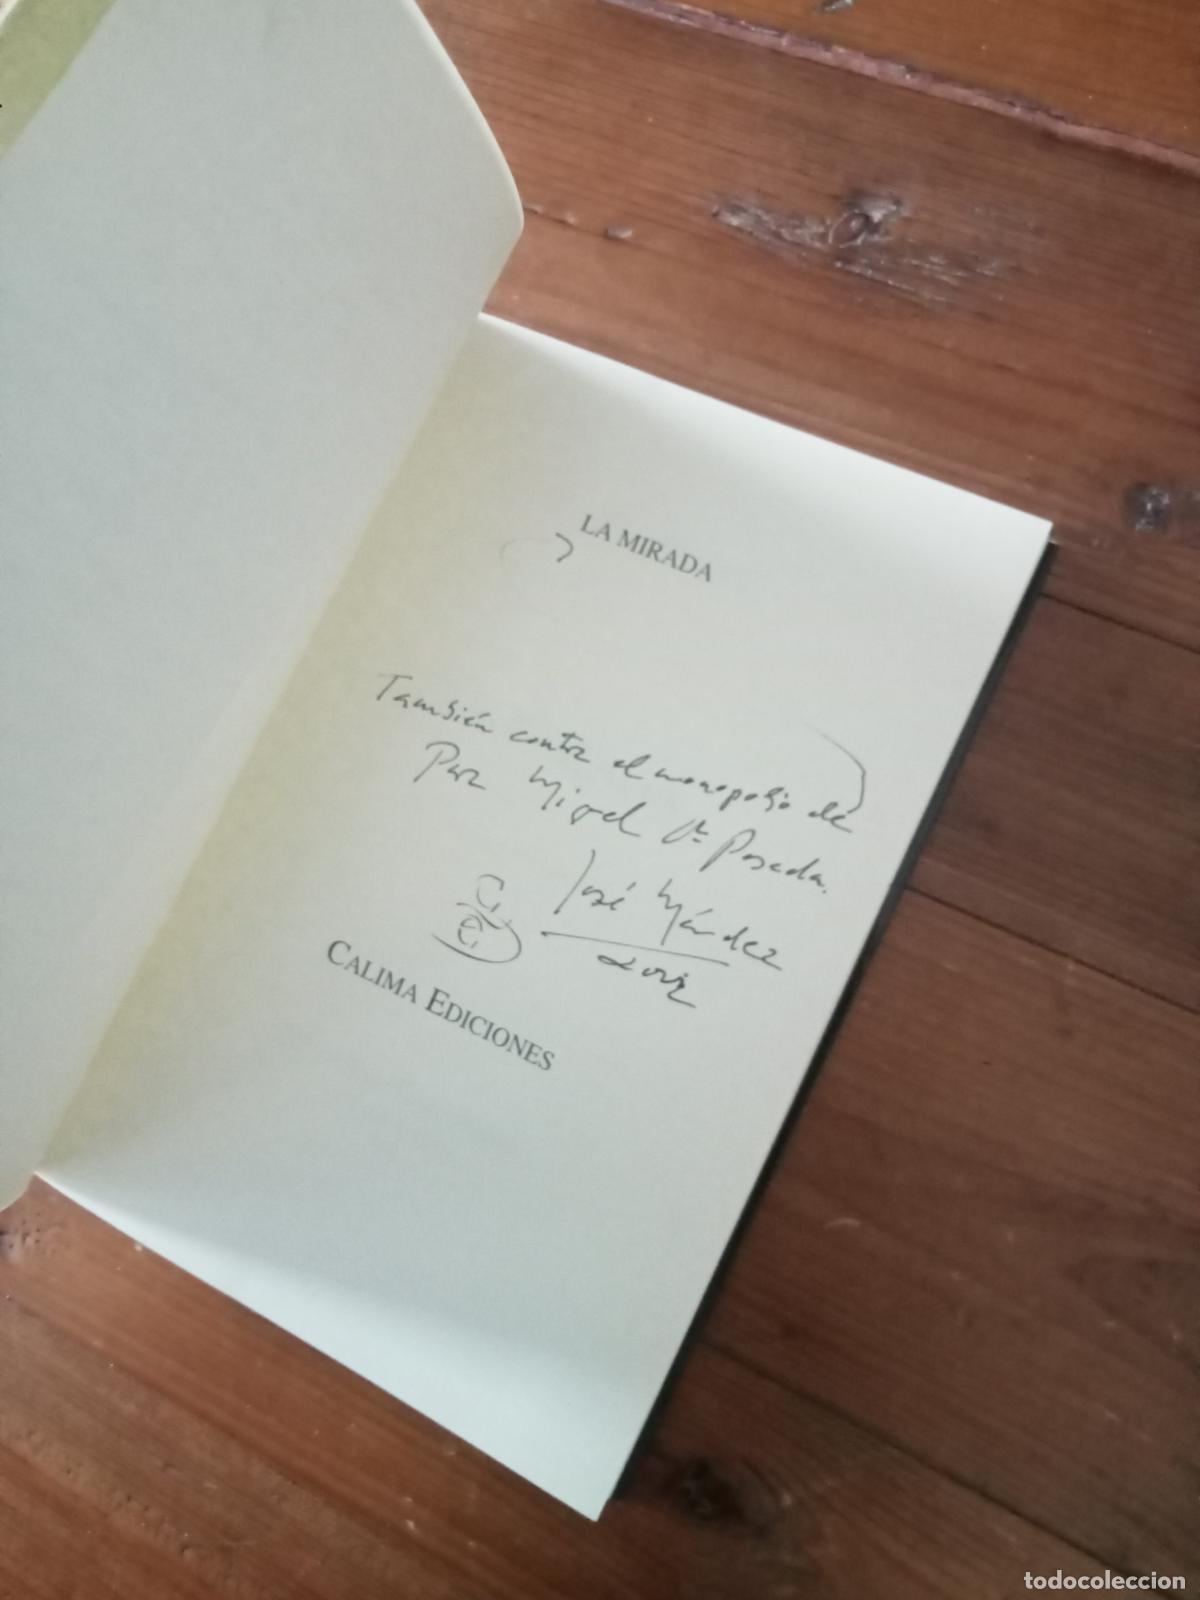 LA MIRADA
También contra el monopolio de
Para Miguel Gª Posada.
José Méndez
C,
E,
CALIMA EDICIONES
todocoleccion